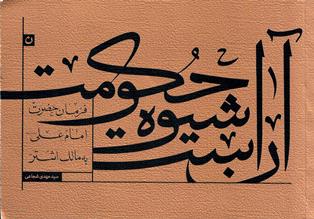 آن است
شیوه
حکومت
فرمان حضرت
امام علی
به مالک اشتر
سید مهدی شجاعی